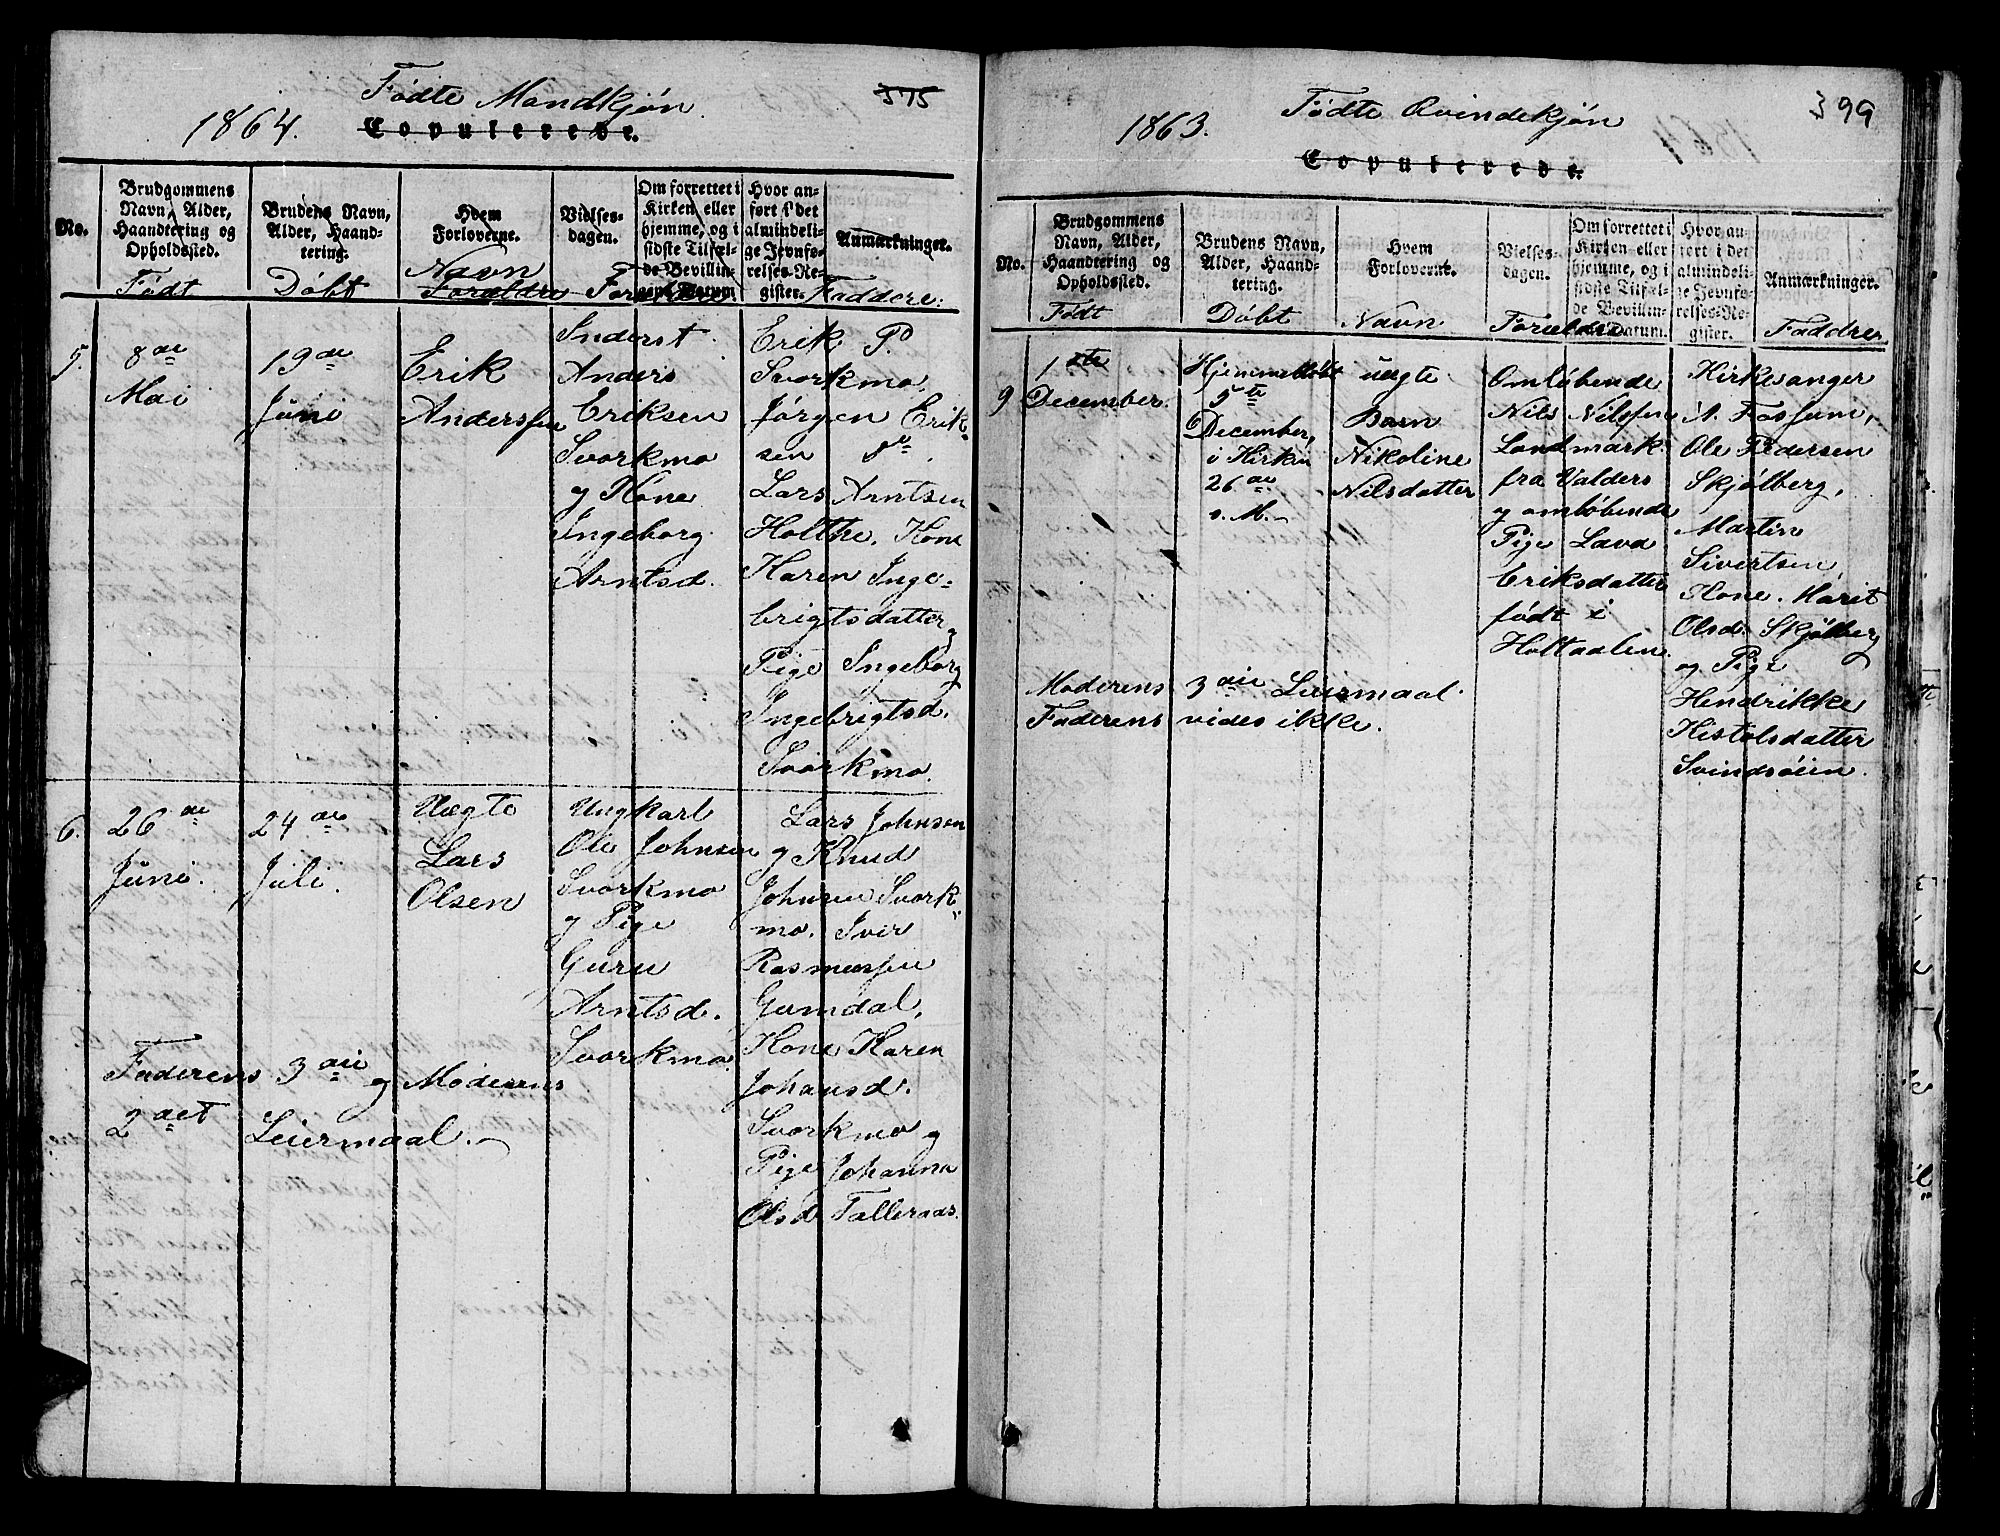 Fødte Mandkjøn. 375
1864. Copulerede.
No.
Brudgommens
Navn, Alder,
Haandtering og
Opholdssted.
Født
Brudens Navn,
Alder, Haand-
tering.
Døbt
Hvem
Forloverne.
Navn
Forældre
Vielses-
dagen.
Forældre
Om forrettet i
Kirken eller
hjemme, og i
sidste Tilfæl-
de Bevillin-
gens Datum.
Hvor an-
ført i det
almindeli-
ge Jevnfø-
relses-Re-
gister.
Anmærkninger.
Faddere.
5.
8de
Mai
19de
Juni
Erik
Anderssen
Inderst
Anders
Eriksen
Svorkmo
og Kone
Ingeborg
Arntsd.
Erik P.
Svorkmo,
Jørgen Erik-
sen
Lars Arntsen
Holthe. Kone
Karen Inge-
brigtsdatter
Pige Ingeborg
Ingebrigtsd.
Svorkmo.
6.
26de
Juni.
24de
Juli.
Uægte
Lars
Olsen
Ungkarl
Ole Johnsen
Svorkmo
og Pige
Guru
Arntsd.
Svorkmo
Lars Johnsen
og Knud
Johnsen Svork-
mo. Iver
Rasmussen
Gumdal,
Kone Karen
Johansd.
Svorkmo og
Pige Johanna
Olsd Talleraas.
Faderens 3die og Moderens
2det Leiermaal.
Fødte Qvindekjøn 399
1863.
Copulerede.
No.
Brudgommens
Navn, Alder,
Haandtering og
Opholdssted.
Født
Brudens Navn,
Alder, Haand-
tering.
Døbt
Hvem
Forloverne.
Navn
Vielses-
dagen.
Forældre
Om forrettet i
Kirken eller
hjemme, og i
sidste Tilfæl-
de Bevillin-
gens Datum.
Hvor an-
ført i det
almindeli-
ge Jevnfø-
relses-Re-
gister.
Anmærkninger.
Faddre
9
1ste
December.
Hjemmedøbt
5te
December,
i Kirken
26de
s. M.
uægte
Barn
Nikoline
Nilsdatter
Omløbende
Nils Nilssen
Landmark
fra Valders
og omløbende
Pige Lava
Eriksdatter
født i
Holtaalen
Kirkesanger
A. Fossum,
Ole Pedersen
Skjølberg,
Martin
Sivertsen,
Kone. Marit
Olsd. Skjølberg
og Pige
Hendrikke
Kistolsdatter
Svindsøien.
Moderens 3die Leiermaal.
Faderens vides ikke.